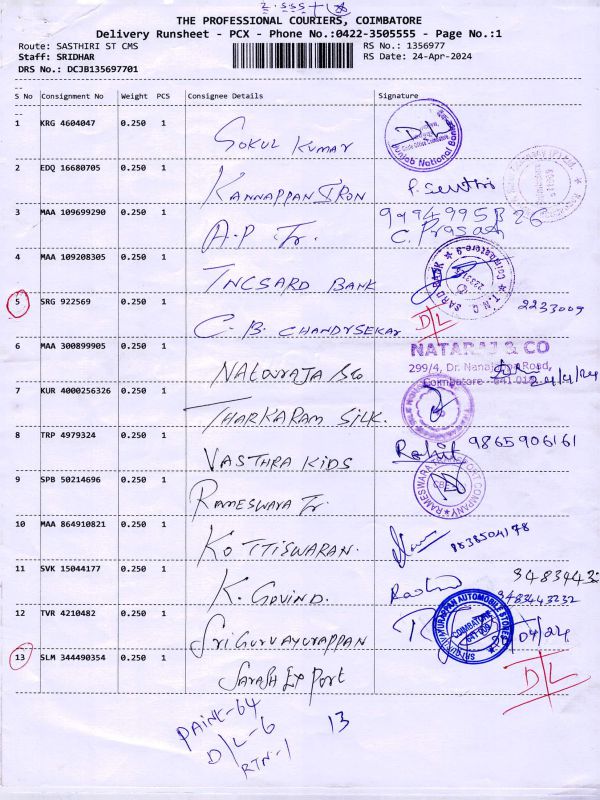 THE PROFESSIONAL COURIERS, COIMBATORE
Delivery Runsheet - PCX - Phone No.:0422-3505555 - Page No.:1
Route: SASTHIRI ST CMS
RS No.: 1356977
Staff: SRIDHAR
RS Date: 24-Apr-2024
DRS No.: DCJB135697701
S No Consignment No Weight PCS Consignee Details Signature
1 KRG 4604047 0.250 1 GOKUL KUMAR Punjab National Bank
2 EDQ 16680705 0.250 1 KANNAPPAN IRON P. Senthi
3 MAA 109699290 0.250 1 A.P Tr. C. Prasath
4 MAA 109208305 0.250 1 TNCSARD BANK T.N.C. SARD BANK Coimbatore-9
5 SRG 922569 0.250 1 C.B. CHANDRSEKAR D/L 2233009
6 MAA 300899905 0.250 1 NATARAJA &Co NATARAJ & CO
299/4, Dr. Nanjappan Road,
Coimbatore - 641 018 24/4/24
7 KUR 4000256326 0.250 1 THARKARAM SILK.
8 TRP 4979324 0.250 1 VASTHRA KIDS Rohit 9865906161
9 SPB 50214696 0.250 1 RAMESWARA Tr. RAMESWARA TRANSPORT COMPANY CBE
10 MAA 864910821 0.250 1 KOTTISWARAN.
11 SVK 15044177 0.250 1 K. GOVIND. 9483443232
12 TVR 4210482 0.250 1 SRI GURUVAYURAPPAN SRI GURUVAYURAPPAN AUTOMOBILE STORES COIMBATORE /04/24
13 SLM 344490354 0.250 1 Sarash Export D/L
PAINE-64
D/L-6 13
RTN-1